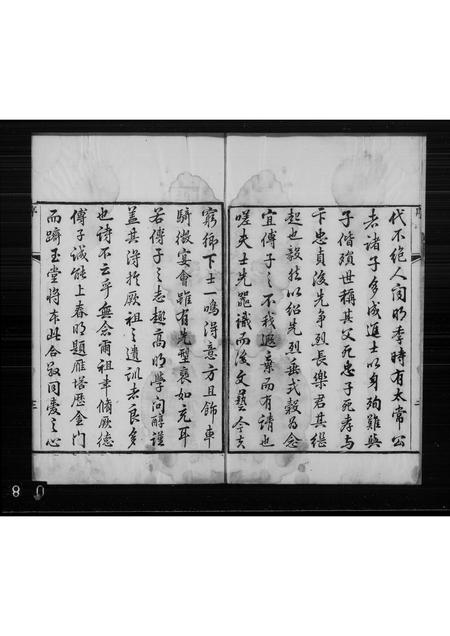 代不絕人閩明季時有太常公
者諸子多成進士以身殉難與
子偕殞世稱其父死忠子死孝與
卞忠貞後先爭烈長樂君其繼
起也毅然以紹先烈垂式穀為念
宜傅子之不我遐棄而有請也
嗟夫士先器識而後文藝今夫
窮鄉下士一鳴得意方且飾車
騎徵宴會雖有先型褎如充耳
若傅子之志趣高明學問醇謹
蓋其得於厥祖之遺訓者良多
也詩不云乎無念爾祖聿脩厥德
傅子誠能上春明題雁塔歷金門
而躋玉堂將本此合敬同愛之心
序
三
8 0